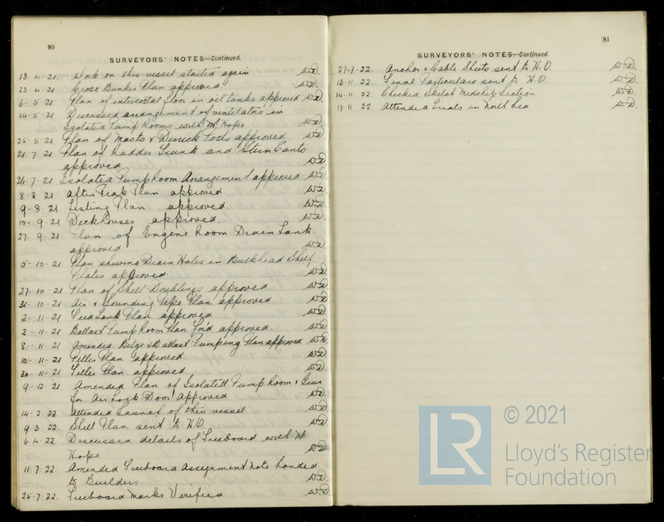 80
SURVEYORS' NOTES—Continued.
13-4-21. Work on this vessel started again
25-4-21 Cross Bunker Plan approved
6-5-21 Plan of intercostal floor in oil tanks approved
14-5-21 Discussed arrangement of ventilators in
Isolated Pump Rooms with Mr Hope
26-5-21 Plan of Masts & Derrick Posts approved
21-7-21 Plan of Rudder Trunk and Stern Cants
approved
26-7-21 Isolated Pump Room Arrangement approved
8-8-21 After Peak Plan approved
9-8-21 Listing Plan approved
10-9-21 Deckhouses approved
27-9-21 Plan of Engine Room Drain Tank
approved
5-10-21 Plan shewing Drain Holes in Bulkhead Shelf
Plates approved
27-10-21 Plan of Shell Doublings approved
31-10-21 Air & Sounding Pipe Plan approved
2-11-21 Plan approved
2-11-21 Ballast Pump Room Plan approved
8-11-21 Amended Bilge & Ballast Pumping Plan approved
10-11-21 Plan approved
30-11-21 Plan approved
9-12-21 Amended Plan of Isolated Pump Room &
for Air Lock Door Approved
14-2-22 Attended Launch of this vessel
9-3-22 Shell Plan sent to H.O.
6-4-22 Discussed details of Freeboard with Mr
Hope
11-7-22 Amended Freeboard Assignment note handed
to Builders
26-7-22. Freeboard marks Verified
81
SURVEYORS' NOTES—Continued.
27-7-22. Anchor & Cable Sheets sent to H.O.
13-11-22. Final Particulars sent to H.O.
14-11-22. Checked Sketch Midship Section
17-11-22 Attended Trials in North Sea
LR © 2021
Lloyd's Register
Foundation